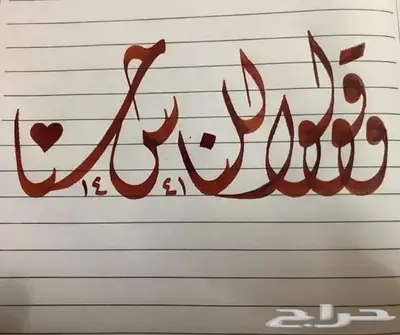 وقولوا للناس حسنا
١٤٤١
حراج